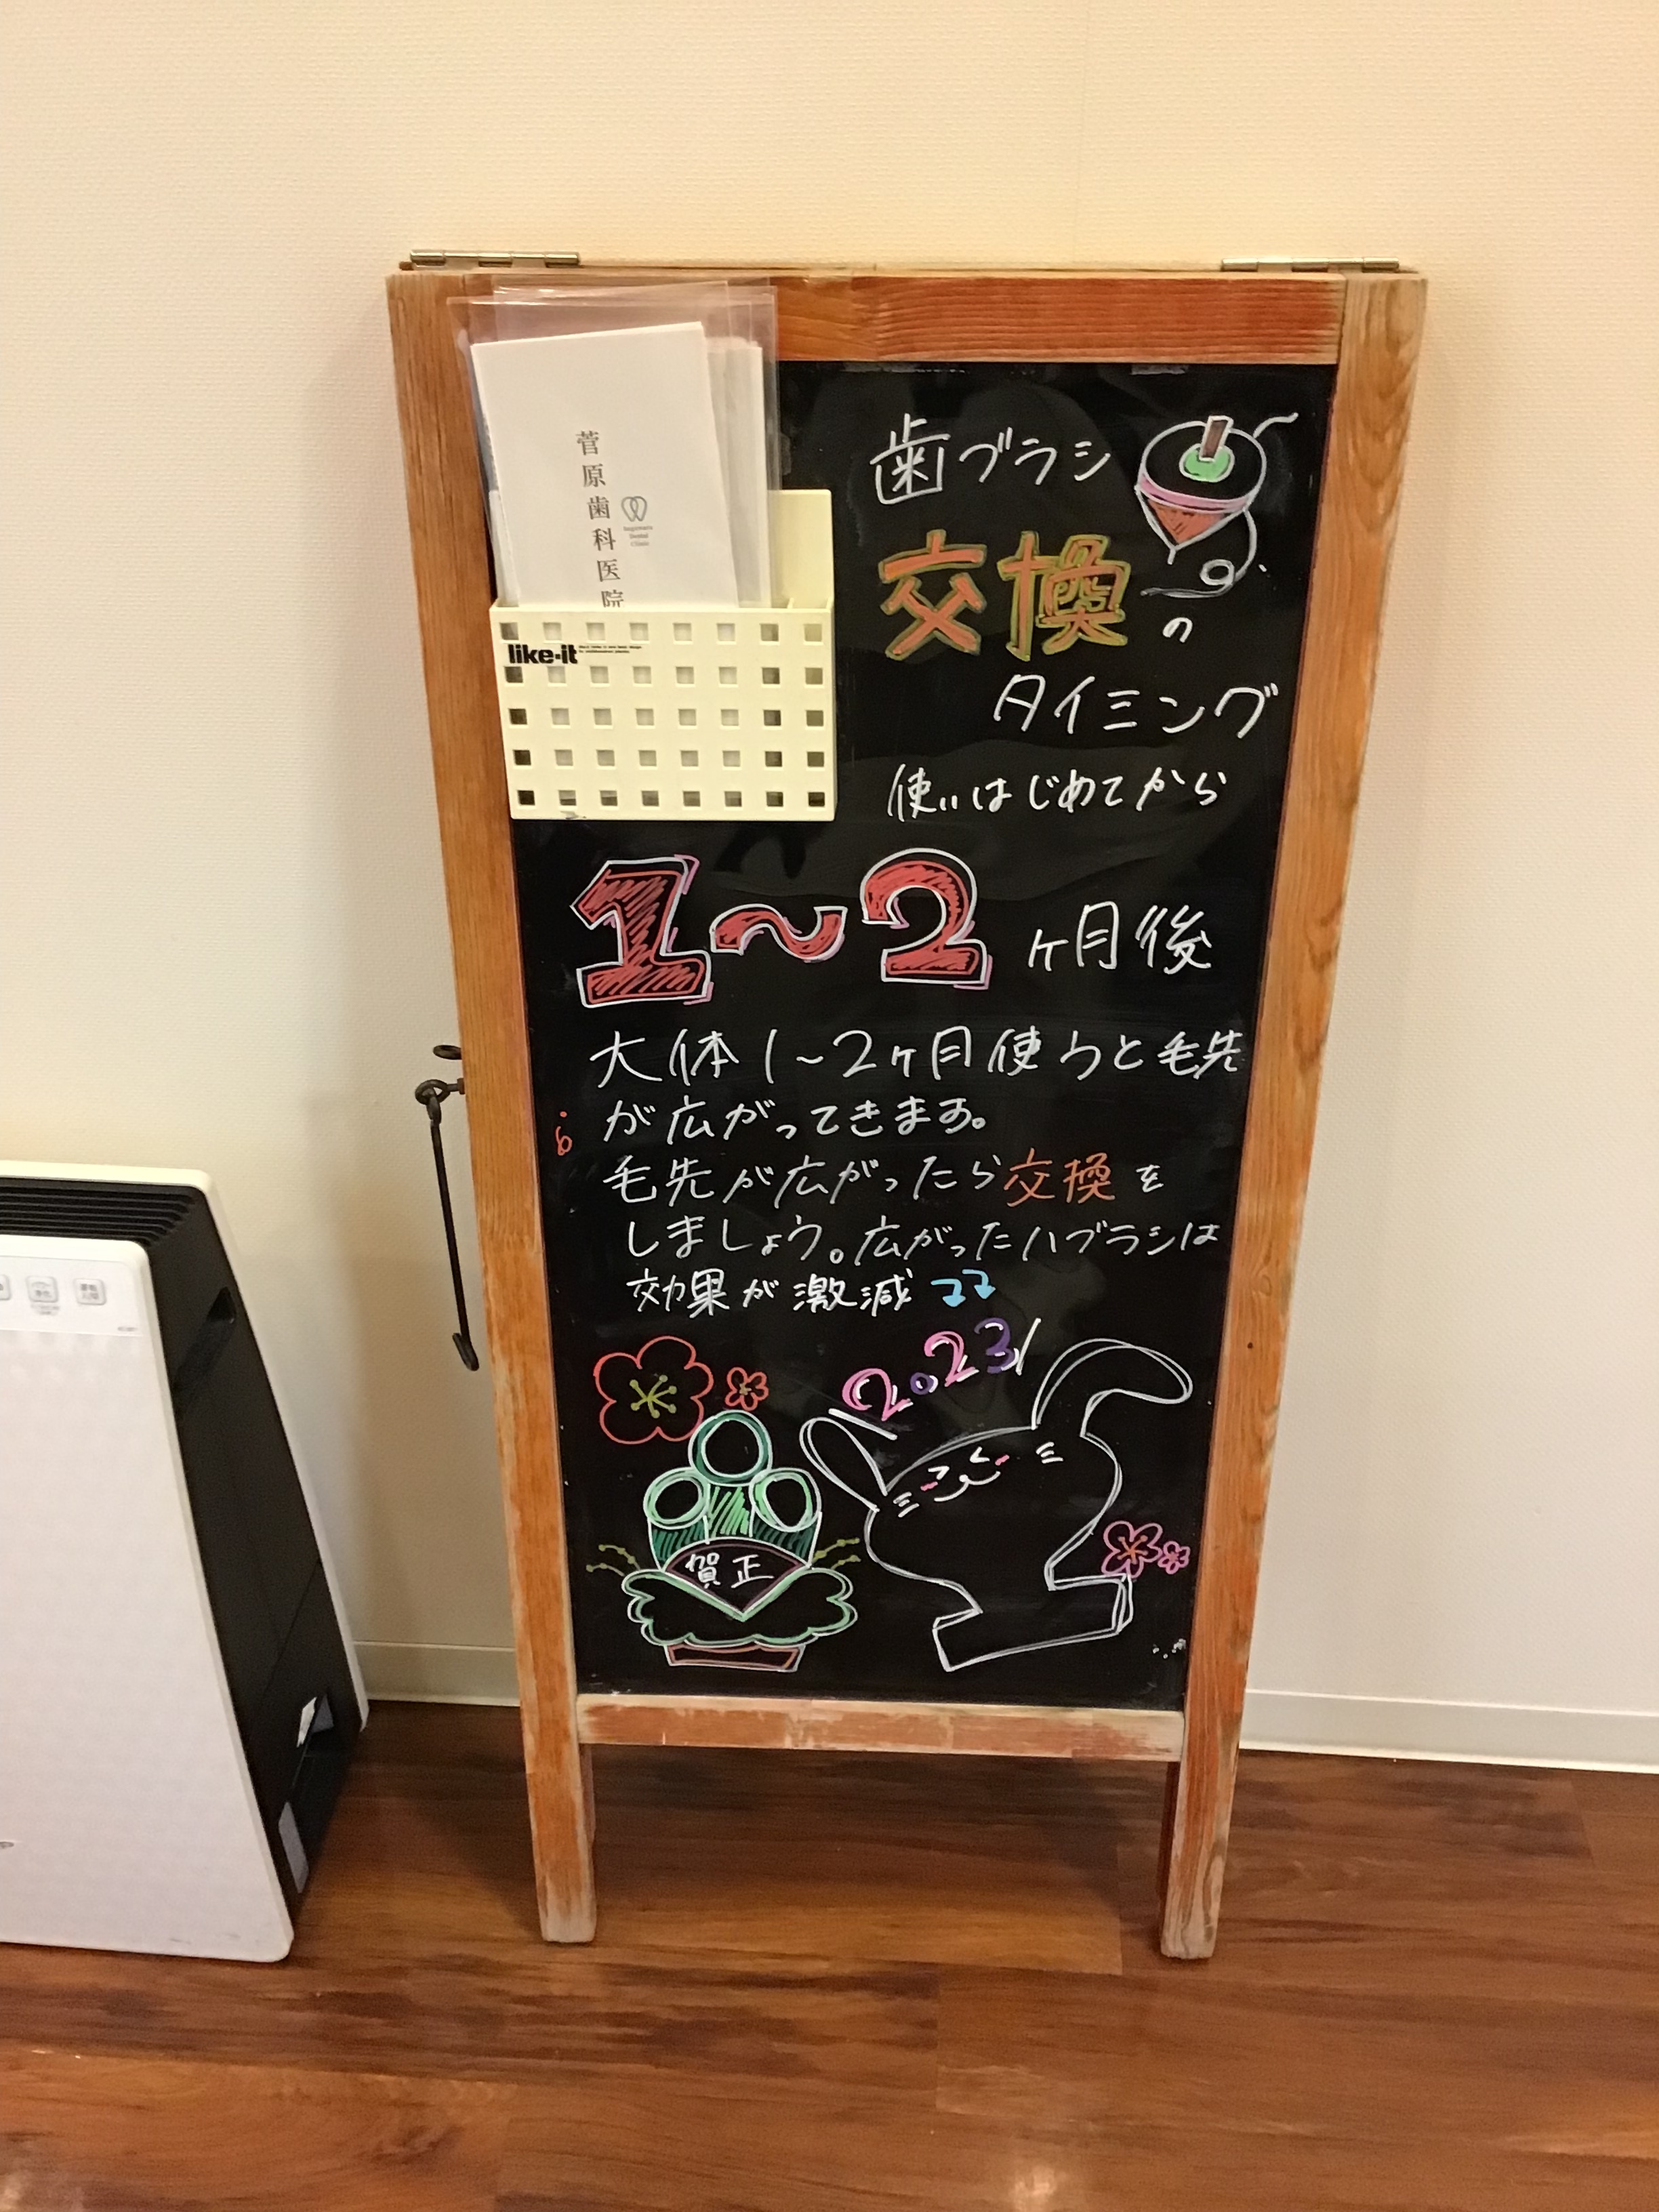 菅原歯科医院
like-it
歯ブラシ
交換の
タイミング
使いはじめてから
1〜2ヶ月後
大体1〜2ヶ月使うと毛先
が広がってきます。
毛先が広がったら交換を
しましょう。広がったハブラシは
効果が激減
2023
賀正